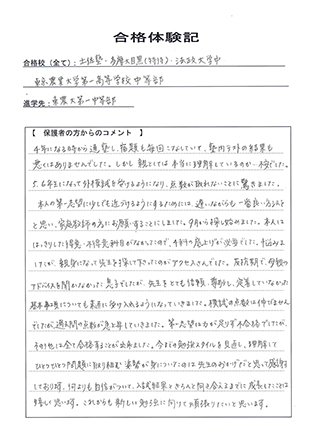 合格体験記
合格校(全て): 土佐塾・多摩大目黒(特待)・法政大学中
東京農業大学第一高等学校中等部
進学先: 東農大第一中等部
【 保護者の方からのコメント 】
4年になる時から通塾し、宿題も毎回こなしていて、塾内テストの結果も
悪くはありませんでした。しかし親としては本当に理解しているのか…不安でした。
5、6年生になって外模試を受けるようになり、点数が取れないことに驚きました。
本人の第一志望に少しでも近づけるようにするためには、遅いながらも一番良い方法を
と思い、家庭教師の方にお願いすることにしました。9月から探し始めました。本人には
はっきりした得意・不得意科目がなかったので、4科の底上げが必要でした。悩みま
したが、親身になって先生を探して下さったのがアクセスさんでした。反抗期で、母親の
アドバイスを聞かなかった息子でしたが、先生をとても信頼、尊敬し、定着していなかった
基本事項についても素直に受け入れるようになっていきました。模試の点数は伸びません
でしたが、過去問の点数が急上昇していきました。第一志望は力が足りず不合格でしたが、
その他は全て合格することが出来ました。今までの勉強スタイルを見直し、理解して
ひとつひとつ問題に取り組む姿勢が身についたのは先生のおかげだと思って感謝
しております。何よりも自信がついて、入試結果ときちんと向き合えるまでに成長したことは
嬉しく思います。これからも新しい勉強に向けて頑張りたいと思います。